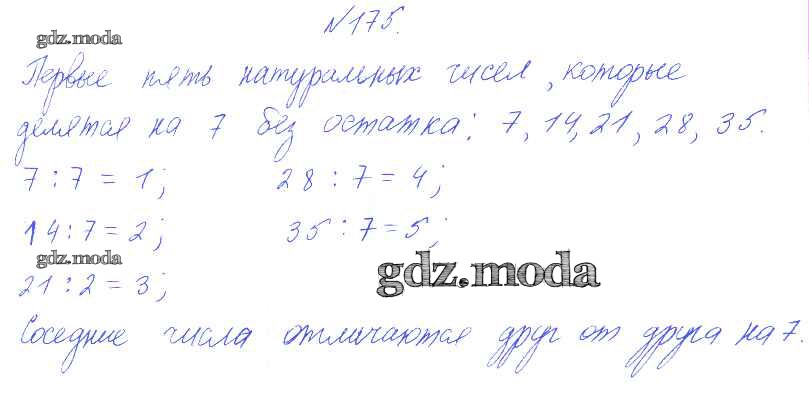 №175.
gdz.moda
Первые пять натуральных чисел, которые
делятся на 7 без остатка: 7, 14, 21, 28, 35.
7 : 7 = 1; 28 : 7 = 4;
14 : 7 = 2; 35 : 7 = 5;
gdz.moda
gdz.moda
21 : 2 = 3;
Соседние числа отличаются друг от друга на 7.